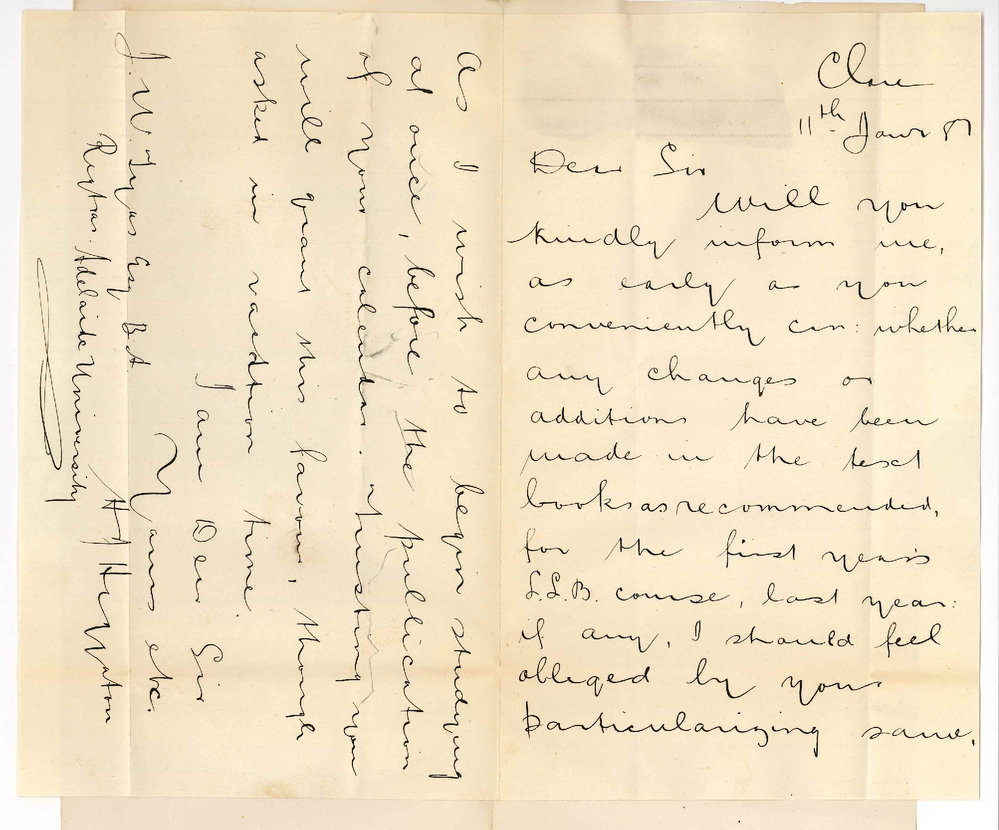 Clare
11th Jany 87
Dear Sir
Will you
kindly inform me,
as early as you
conveniently can: whether
any changes or
additions have been
made in the text
books as recommended,
for the first year's
L.L.B. course, last year:
if any, I should feel
obliged by your
particularizing same,
As I wish to begin studying
at once, before the publication
of your calendar. Trusting you
will grant this favour, though
asked in vacation time.
I am Dear Sir
Yours etc.
J. W. Tyas Esq B.A
Registrar. Adelaide University